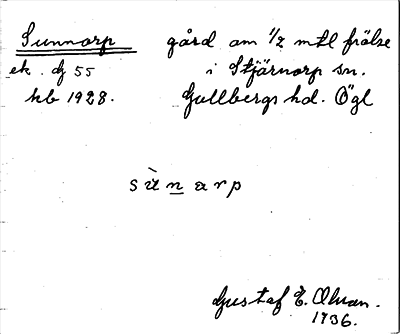 Sunnorp gård om 1/2 mtl frälse
ek. dj 55 i Stjärnorp sn.
kb 1928. Gullbergs hd. Ögl
sùnarp
Gustaf E.
1936.